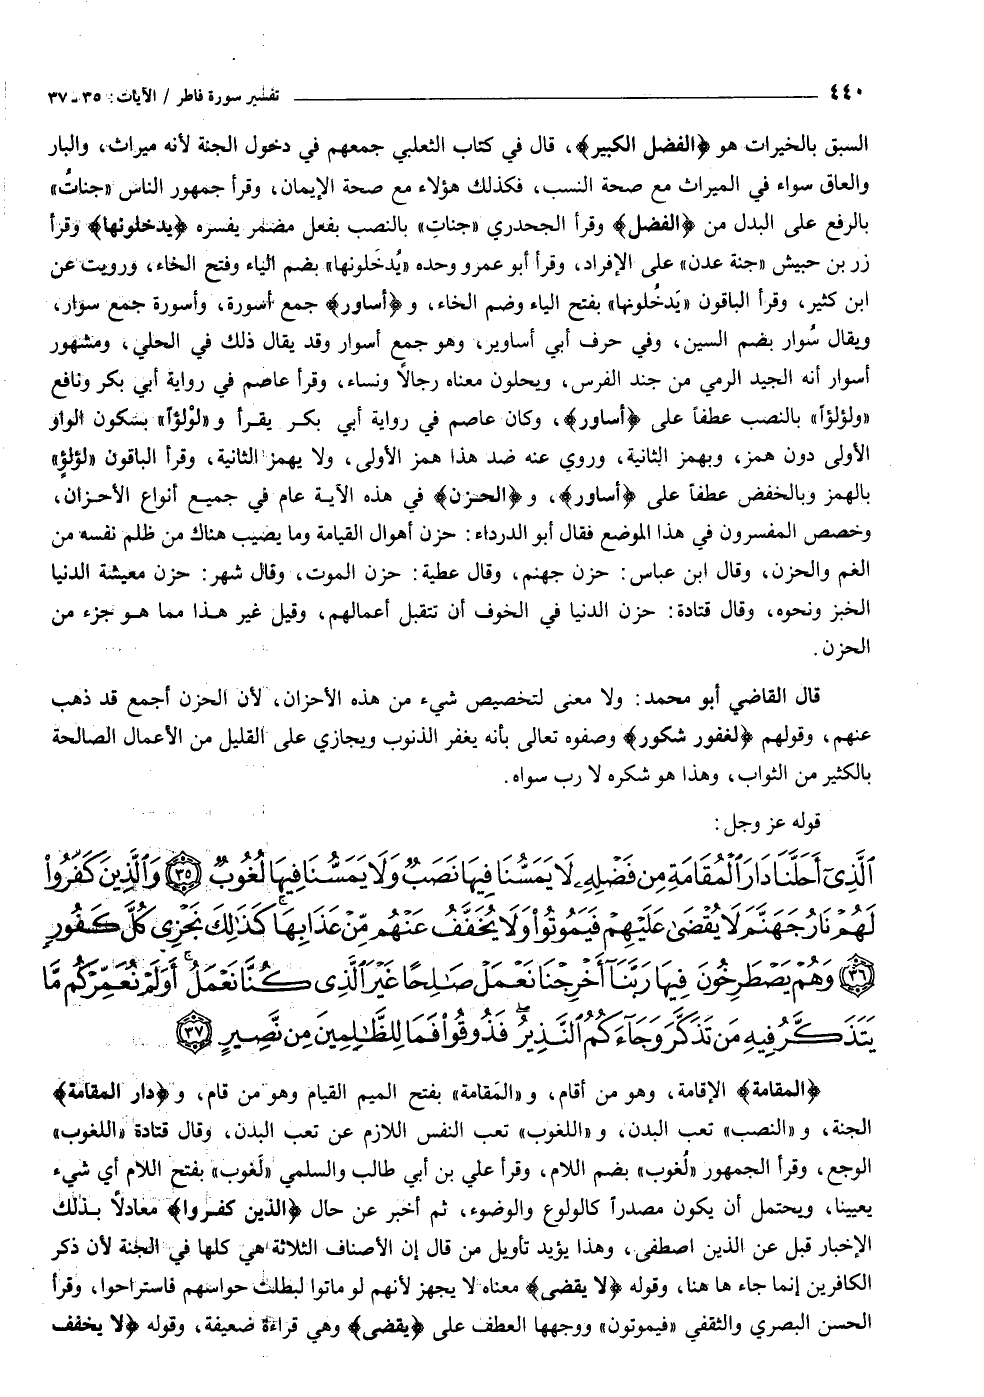 ٤٤٠ تفسير سورة فاطر / الآيات: ٣٥ ـ ٣٧
السبق بالخيرات هو ﴿الفضل الكبير﴾، قال في كتاب الثعلبي جمعهم في دخول الجنة لأنه ميراث، والبار
والعاق سواء في الميراث مع صحة النسب، فكذلك هؤلاء مع صحة الإيمان، وقرأ جمهور الناس «جناتُ»
بالرفع على البدل من ﴿الفضل﴾ وقرأ الجحدري «جناتِ» بالنصب بفعل مضمر يفسره ﴿يدخلونها﴾ وقرأ
زر بن حبيش «جنة عدن» على الإفراد، وقرأ أبو عمرو وحده «يُدخَلونها» بضم الياء وفتح الخاء، ورويت عن
ابن كثير، وقرأ الباقون «يَدخُلونها» بفتح الياء وضم الخاء، و ﴿أساور﴾ جمع أسورة، وأسورة جمع سوار،
ويقال سُوار بضم السين، وفي حرف أبي أساوير، وهو جمع أسوار وقد يقال ذلك في الحلي، ومشهور
أسوار أنه الجيد الرمي من جند الفرس، ويحلون معناه رجالاً ونساء، وقرأ عاصم في رواية أبي بكر ونافع
«ولؤلؤاً» بالنصب عطفاً على ﴿أساور﴾، وكان عاصم في رواية أبي بكر يقرأ و «لوْلؤاً» بسكون الواو
الأولى دون همز، وبهمز الثانية، وروي عنه ضد هذا همز الأولى، ولا يهمز الثانية، وقرأ الباقون «لؤلؤٍ»
بالهمز وبالخفض عطفاً على ﴿أساور﴾، و ﴿الحزن﴾ في هذه الآية عام في جميع أنواع الأحزان،
وخصص المفسرون في هذا الموضع فقال أبو الدرداء: حزن أهوال القيامة وما يصيب هناك من ظلم نفسه من
الغم والحزن، وقال ابن عباس: حزن جهنم، وقال عطية: حزن الموت، وقال شهر: حزن معيشة الدنيا
الخبز ونحوه، وقال قتادة: حزن الدنيا في الخوف أن تتقبل أعمالهم، وقيل غير هذا مما هو جزء من
الحزن.
قال القاضي أبو محمد: ولا معنى لتخصيص شيء من هذه الأحزان، لأن الحزن أجمع قد ذهب
عنهم، وقولهم ﴿لغفور شكور﴾ وصفوه تعالى بأنه يغفر الذنوب ويجازي على القليل من الأعمال الصالحة
بالكثير من الثواب، وهذا هو شكره لا رب سواه.
قوله عز وجل:
ٱلَّذِىٓ أَحَلَّنَا دَارَ ٱلْمُقَامَةِ مِن فَضْلِهِۦ لَا يَمَسُّنَا فِيهَا نَصَبٌ وَلَا يَمَسُّنَا فِيهَا لُغُوبٌ ﴿٣٥﴾ وَٱلَّذِينَ كَفَرُوا۟
لَهُمْ نَارُ جَهَنَّمَ لَا يُقْضَىٰ عَلَيْهِمْ فَيَمُوتُوا۟ وَلَا يُخَفَّفُ عَنْهُم مِّنْ عَذَابِهَا ۚ كَذَٰلِكَ نَجْزِى كُلَّ كَفُورٍ
﴿٣٦﴾ وَهُمْ يَصْطَرِخُونَ فِيهَا رَبَّنَآ أَخْرِجْنَا نَعْمَلْ صَٰلِحًا غَيْرَ ٱلَّذِى كُنَّا نَعْمَلُ ۚ أَوَلَمْ نُعَمِّرْكُم مَّا
يَتَذَكَّرُ فِيهِ مَن تَذَكَّرَ وَجَآءَكُمُ ٱلنَّذِيرُ ۖ فَذُوقُوا۟ فَمَا لِلظَّٰلِمِينَ مِن نَّصِيرٍ ﴿٣٧﴾
﴿المقامة﴾ الإقامة، وهو من أقام، و «المَقامة» بفتح الميم القيام وهو من قام، و ﴿دار المقامة﴾
الجنة، و «النصب» تعب البدن، و «اللغوب» تعب النفس اللازم عن تعب البدن، وقال قتادة «اللغوب»
الوجع، وقرأ الجمهور «لُغوب» بضم اللام، وقرأ علي بن أبي طالب والسلمي «لَغوب» بفتح اللام أي شيء
يعيينا، ويحتمل أن يكون مصدراً كالولوع والوضوء، ثم أخبر عن حال ﴿الذين كفروا﴾ معادلاً بذلك
الإخبار قبل عن الذين اصطفى، وهذا يؤيد تأويل من قال إن الأصناف الثلاثة هي كلها في الجنة لأن ذكر
الكافرين إنما جاء ها هنا، وقوله ﴿لا يقضى﴾ معناه لا يجهز لأنهم لو ماتوا لبطلت حواسهم فاستراحوا، وقرأ
الحسن البصري والثقفي «فيموتون» ووجهها العطف على ﴿يقضى﴾ وهي قراءة ضعيفة، وقوله ﴿لا يخفف